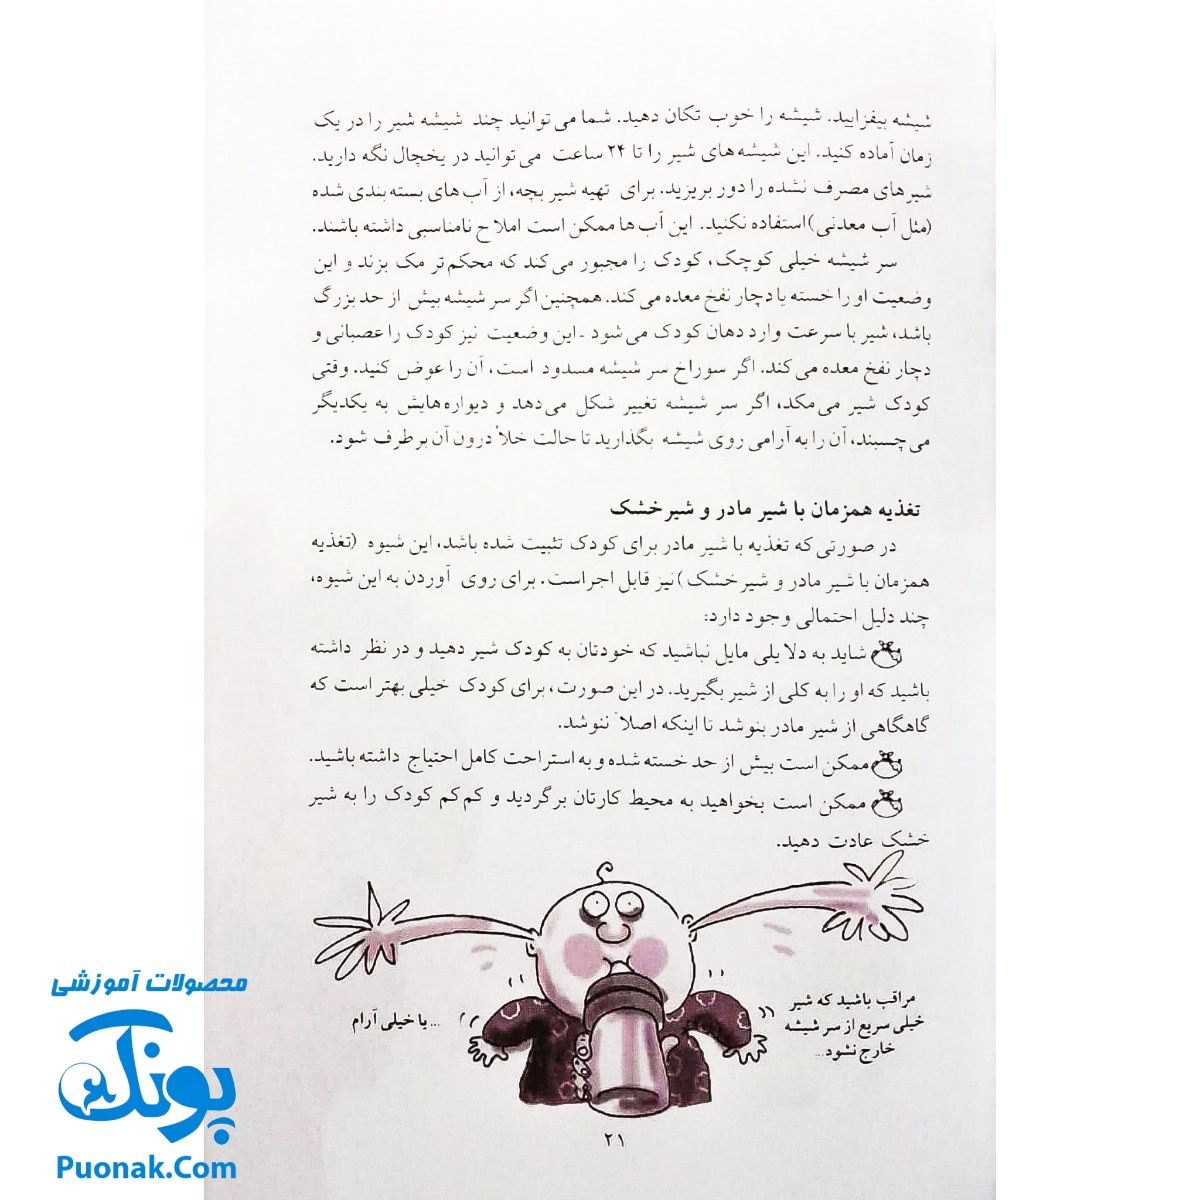 شیشه بیفزایید. شیشه را خوب تکان دهید. شما می‌توانید چند شیشه شیر را در یک
زمان آماده کنید. این شیشه‌های شیر را تا ۲۴ ساعت می‌توانید در یخچال نگه دارید.
شیرهای مصرف نشده را دور بریزید. برای تهیه شیر بچه، از آب‌های بسته‌بندی شده
(مثل آب معدنی) استفاده نکنید. این آب‌ها ممکن است املاح نامناسبی داشته باشند.
سر شیشه خیلی کوچک، کودک را مجبور می‌کند که محکم‌تر مک بزند و این
وضعیت او را خسته یا دچار نفخ معده می‌کند. همچنین اگر سر شیشه بیش از حد بزرگ
باشد، شیر با سرعت وارد دهان کودک می‌شود ـ این وضعیت نیز کودک را عصبانی و
دچار نفخ معده می‌کند. اگر سوراخ سر شیشه مسدود است، آن را عوض کنید. وقتی
کودک شیر می‌مکد، اگر سر شیشه تغییر شکل می‌دهد و دیواره‌هایش به یکدیگر
می‌چسبند، آن را به آرامی روی شیشه بگذارید تا حالت خلأ درون آن برطرف شود.
تغذیه همزمان با شیر مادر و شیرخشک
در صورتی که تغذیه با شیر مادر برای کودک تثبیت شده باشد، این شیوه (تغذیه
همزمان با شیر مادر و شیرخشک) نیز قابل اجراست. برای روی آوردن به این شیوه،
چند دلیل احتمالی وجود دارد:
شاید به دلایلی مایل نباشید که خودتان به کودک شیر دهید و در نظر داشته
باشید که او را به کلی از شیر بگیرید. در این صورت، برای کودک خیلی بهتر است که
گاهگاهی از شیر مادر بنوشد تا اینکه اصلاً ننوشد.
ممکن است بیش از حد خسته شده و به استراحت کامل احتیاج داشته باشید.
ممکن است بخواهید به محیط کارتان برگردید و کم‌کم کودک را به شیر
خشک عادت دهید.
مراقب باشید که شیر
خیلی سریع از سر شیشه
خارج نشود...
...یا خیلی آرام
۲۱
محصولات آموزشی
پونک
Puonak.Com